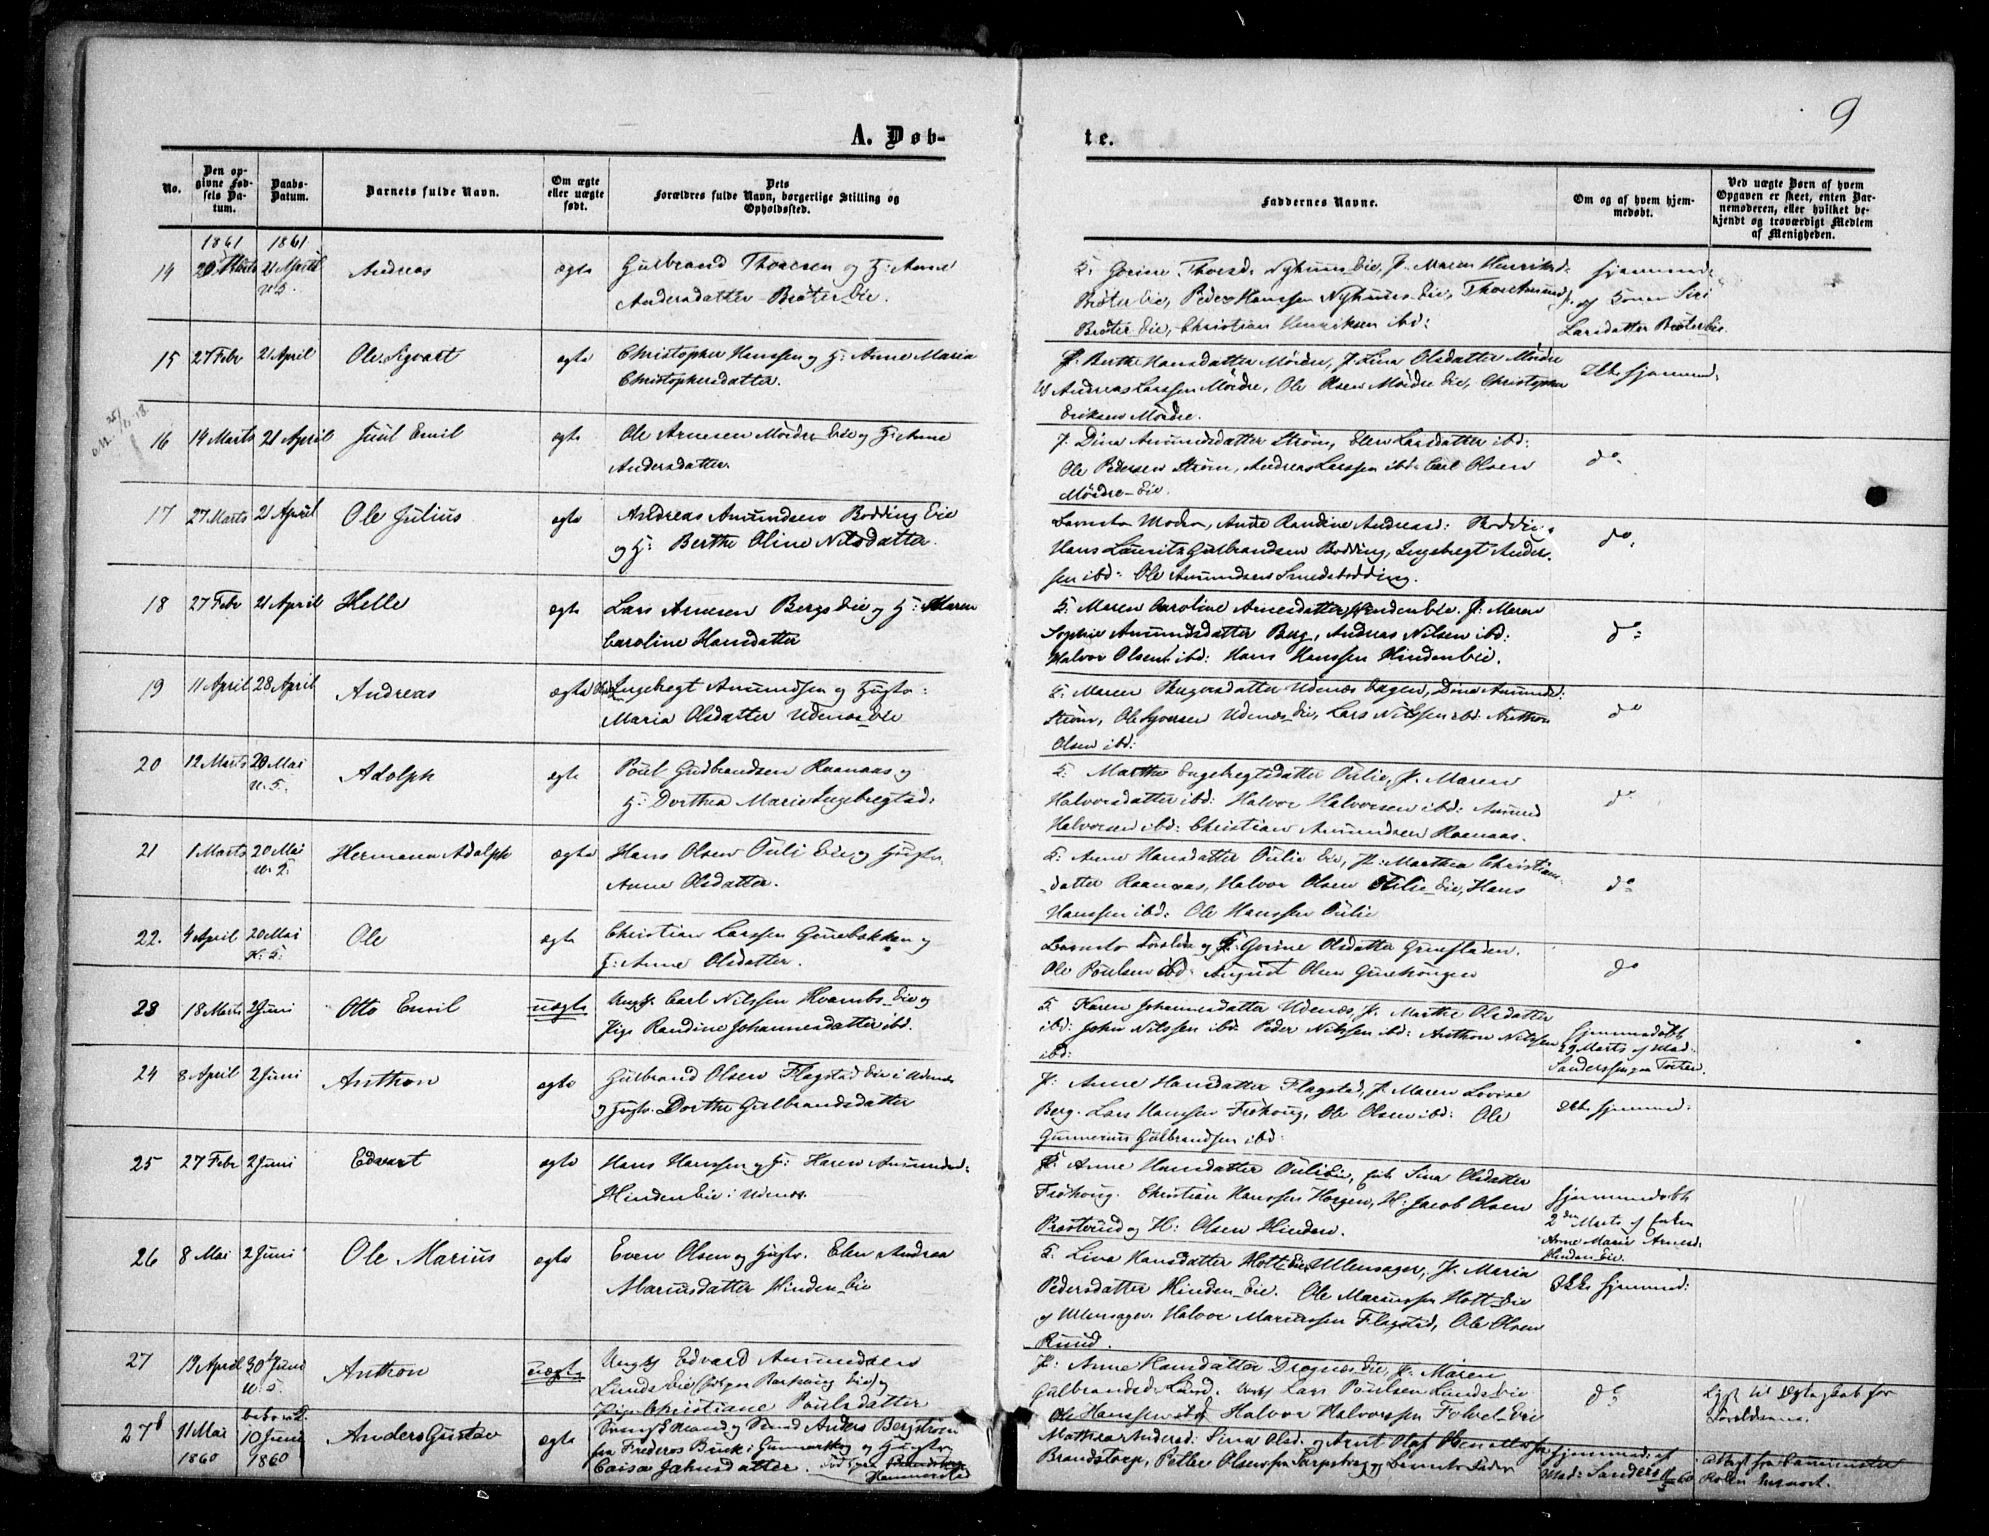 9
A. Døb-
te.
No.
Den op-
givne Fød-
sels Da-
tum.
Daabs-
Datum.
Barnets fulde Navn.
Om ægte
eller uægte
født.
Dets
Forældres fulde Navn, borgerlige Stilling og
Opholdssted.
Faddernes Navne.
Om og af hvem hjem-
medøbt.
Ved uægte Børn af hvem
Opgaven er skeet, enten Bar-
nemoderen, eller hvilket be-
kjendt og troværdigt Medlem
af Menigheden.
1861 1861
14 20 Marts 21 April Andreas ægte Gulbrand Thoresen og H: Anne
Andersdatter Brøter Eie.
Thoresd: Nyhuus Eie, P. Maren Henriksd:
Brøter Eie, Peder Hanssen Nyhuus Eie, Thore Amunds.
Brøter Eie, Christian Henriksen ibd:
hjemmed:
af Konen Siri
Larsdatter Brøter Eie
15 27 Febr 21 April Ole Sigvart ægte Christopher Hanssen og H: Anne Maria
Christophersdatter.
P: Berthe Hansdatter Mördre, P. Lina Olsdatter Mördre
Andreas Larssen Mördre, Ole Olsen Mördre Eie, Christopher
Eriksen Mördre.
Ikke hjemmed:
16 14 Marts 21 April Juul Emil ægte Ole Arnesen Mördre Eie og H: Anne
Andersdatter.
P. Dina Amundsdatter Strøm, Elen Larsdatter ibd:
Ole Pedersen Strøm, Andreas Larssen ibd: Carl Olsen
Mördre Eie.
do
17 27 Marts 21 April Ole Julius ægte Andreas Amundsen Bodding Eie
og H: Berthe Oline Nilsdatter.
Barnets Moder, Randine Andreasd: Bodding
Hans Lauritz Gulbrandsen Bodding, Ingebregt Ander-
sen ibd: Ole Amundsen Smedsbodding.
do
18 27 Febr 21 April Helle ægte Lars Arnesen Bergs Eie og H: Maren
Caroline Hansdatter
K: Maren Caroline Arnesdatter Hinden Eie. P: Maren
Sophie Amundsdatter Berg, Andreas Nilsen ibd:
Halvor Olsen ibd: Hans Hanssen Hinden Eie.
do
19 11 April 28 April Andreas ægte Ingebregt Amundsen og Hustr:
Maria Olsdatter Udenæs Eie
K: Maren Birgersdatter Udenæs Engen, Dina Amunds:
Strøm, Ole Syversen Udenæs Eie, Lars Nilssen ibd: Anthon
Olsen ibd:
do
20 12 Marts 20 Mai Adolph ægte Poul Gudbrandsen Raanaas og
H: Dorthea Marie Ingebregtsd:
K: Marthe Engebregtsdatter Oulie, P. Maren
Halvorsdatter ibd: Halvor Halvorsen ibd: Amund
Halvorsen ibd: Christian Amundsen Raanaas.
do
21 1 Marts 20 Mai Hermann Adolph ægte Hans Olsen Ouli Eie og Hustr.
Anne Olsdatter.
K: Anne Hansdatter Oulie Eie, P: Marthea Christians-
datter Raanaas, Halvor Olsen Oulie Eie, Hans
Hanssen ibd: Ole Hanssen Oulie
do
22. 4 April 20 Mai Ole ægte Christian Larssen Gunebakken og
H: Anne Olsdatter.
Barnets Forældre og P: Gorine Olsdatter Gunefladen.
Ole Poulsen ibd: August Olsen Gunehougen
do
23 18 Marts 2 Juni Otto Emil uægte Ungk. Carl Nilssen Hvambs Eie og
Pige Randine Johannesdatter ibd.
K. Karen Johannesdatter Udenæs, P. Marthe Olsdatter
ibd: John Nilssen ibd: Peder Nilssen ibd: Anthon Nilssen
ibd:
hjemmedøbt
29 Marts af Mad:
24 8 April 2 Juni Anthon ægte Gulbrand Olsen Flagstad Eie i Udenæs
og Hustr. Dorthe Gulbrandsdatter
P: Anne Hansdatter Flagstad, P. Maren Lovise
Berg. Lars Hanssen Frøhoug, Ole Olsen ibd: Ole
Gunnerius Gulbrandsen ibd:
Ikke hjemmed:
25 27 Febr 2 Juni Edvart ægte Hans Hanssen og H: Karen Amundsd:
Hinden Eie i Udenæs.
K: Anne Hansdatter Ouli Eie, Enke Sina Olsdatter
Frøhoug. Christian Hanssen Horgen, H: Jacob Olsen
Præsterud og H: Olsen Hinden.
hjemmedøbt
2den Marts af Enken
Anne Marie Arnesd:
Hinden Eie.
26 8 Mai 2 Juni Ole Marius ægte Even Olsen og Hustr. Elen Andrea
Mariusdatter Hinden Eie
K: Lina Hansdatter Holt Eie Ullensager, P. Maria
Pedersdatter Hinden Eie. Ole Mariussen Holt Eie
af Ullensager. Halvor Mariussen Flagstad, Ole Olsen
Ruud.
Ikke hjemmed:
27 19 April 30 Juni Anthon uægte Ungk Edvard Amundsen
Lunds Eie og
Pige Christiane Poulsdatter
P: Anne Hansdatter Dragnæs Eie, P. Maren
Gulbrandsd: Lund. Ungk Lars Poulsen Lunds Eie
Ole Hanssen ibd: Halvor Halvorssen Eie
do
Lyst til Ægteskab for
Forældrene.
27b 11 Mai 1860 10 Juni 1860 Anders Gustav ægte Anders Bergstrøm
fra Frederos Bruk i og Hustr.
Caisa Jahnsdatter.
Mathea Andersd: Sina Olsd. og Arnt Olaf
Brandstorp, Petter Olsen fra Sarpsborg og Barnets Fader
hjemmed: af
Mad: Sanders